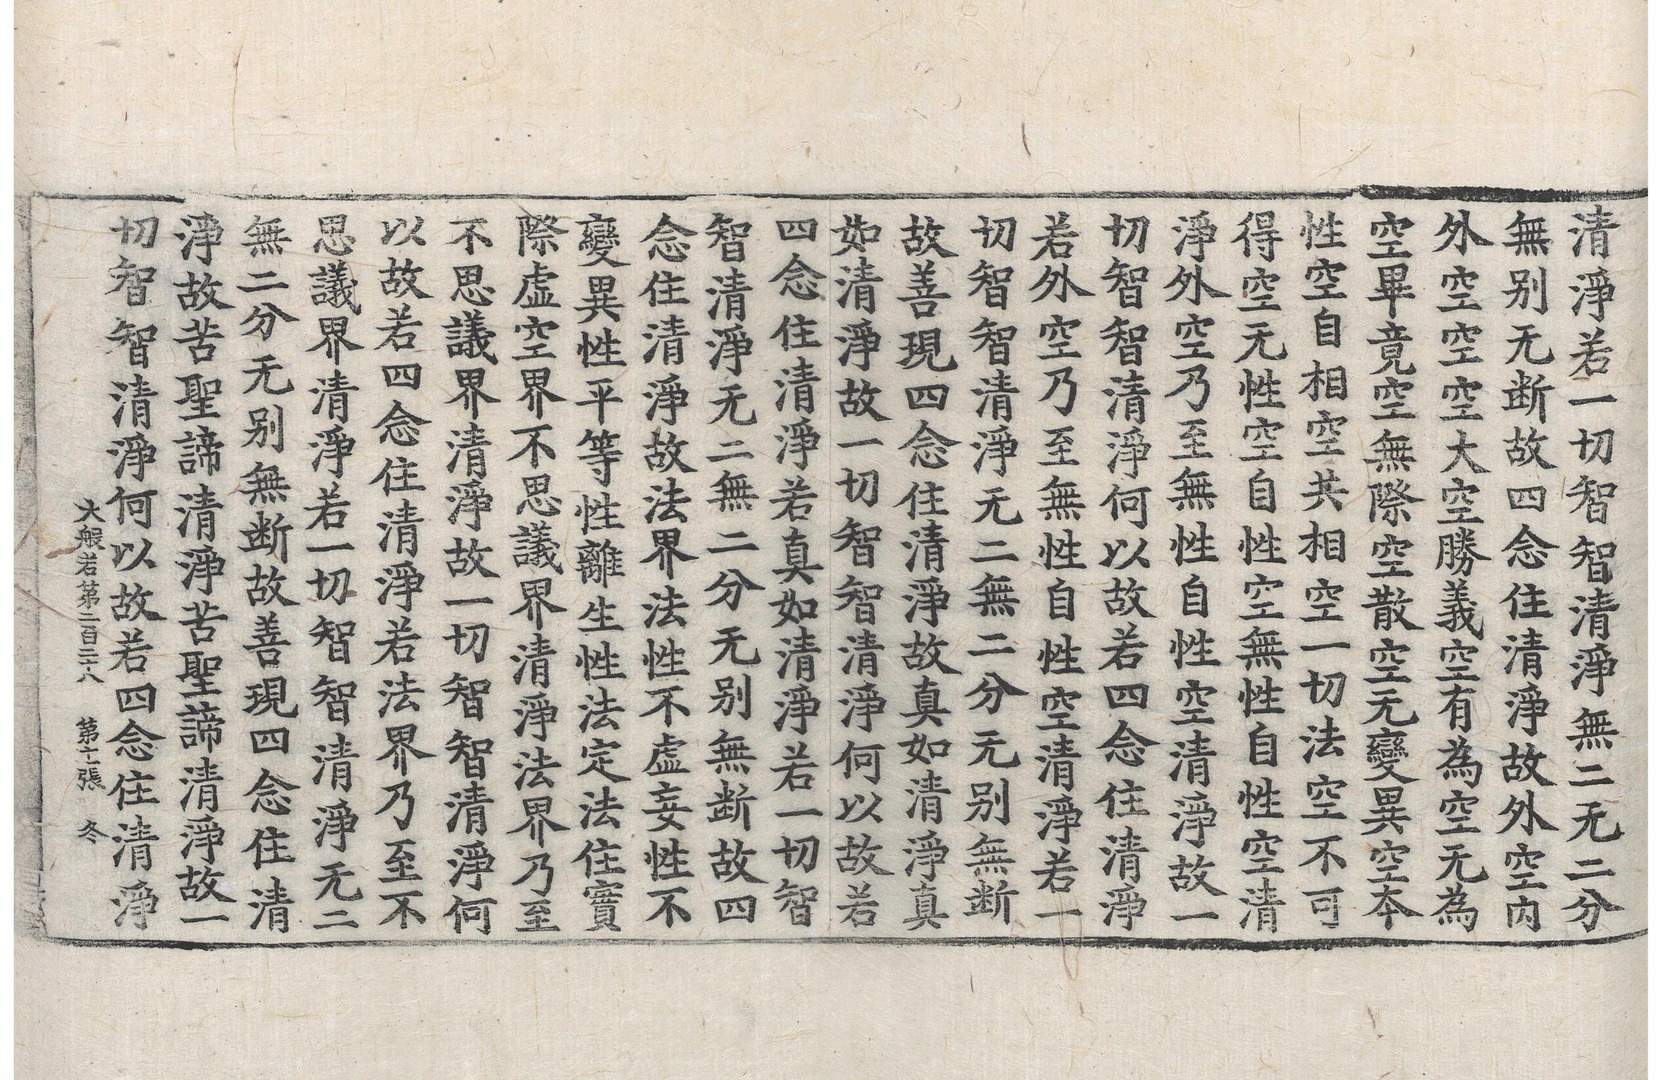 清淨若一切智智清淨無二无二分
無別无断故四念住清淨故外空内
外空空空大空勝義空有為空无為
空畢竟空無際空散空无變異空本
性空自相空共相空一切法空不可
得空无性空自性空無性自性空清
淨外空乃至無性自性空清淨故一
切智智清淨何以故若四念住清淨
若外空乃至無性自性空清淨若一
切智智清淨无二無二分无別無断
故善現四念住清淨故真如清淨真
如清淨故一切智智清淨何以故若
四念住清淨若真如清淨若一切智
智清淨无二無二分无別無断故四
念住清淨故法界法性不虛妄性不
變異性平等性離生性法定法住實
際虛空界不思議界清淨法界乃至
不思議界清淨故一切智智清淨何
以故若四念住清淨若法界乃至不
思議界清淨若一切智智清淨无二
無二分无別無断故善現四念住清
淨故苦聖諦清淨苦聖諦清淨故一
切智智清淨何以故若四念住清淨
大般若第二百二十八 第十一張 冬